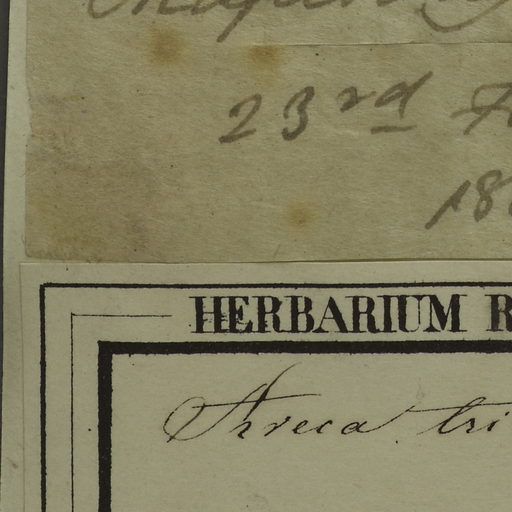 23rd
18
HERBARIUM R
Areca tri